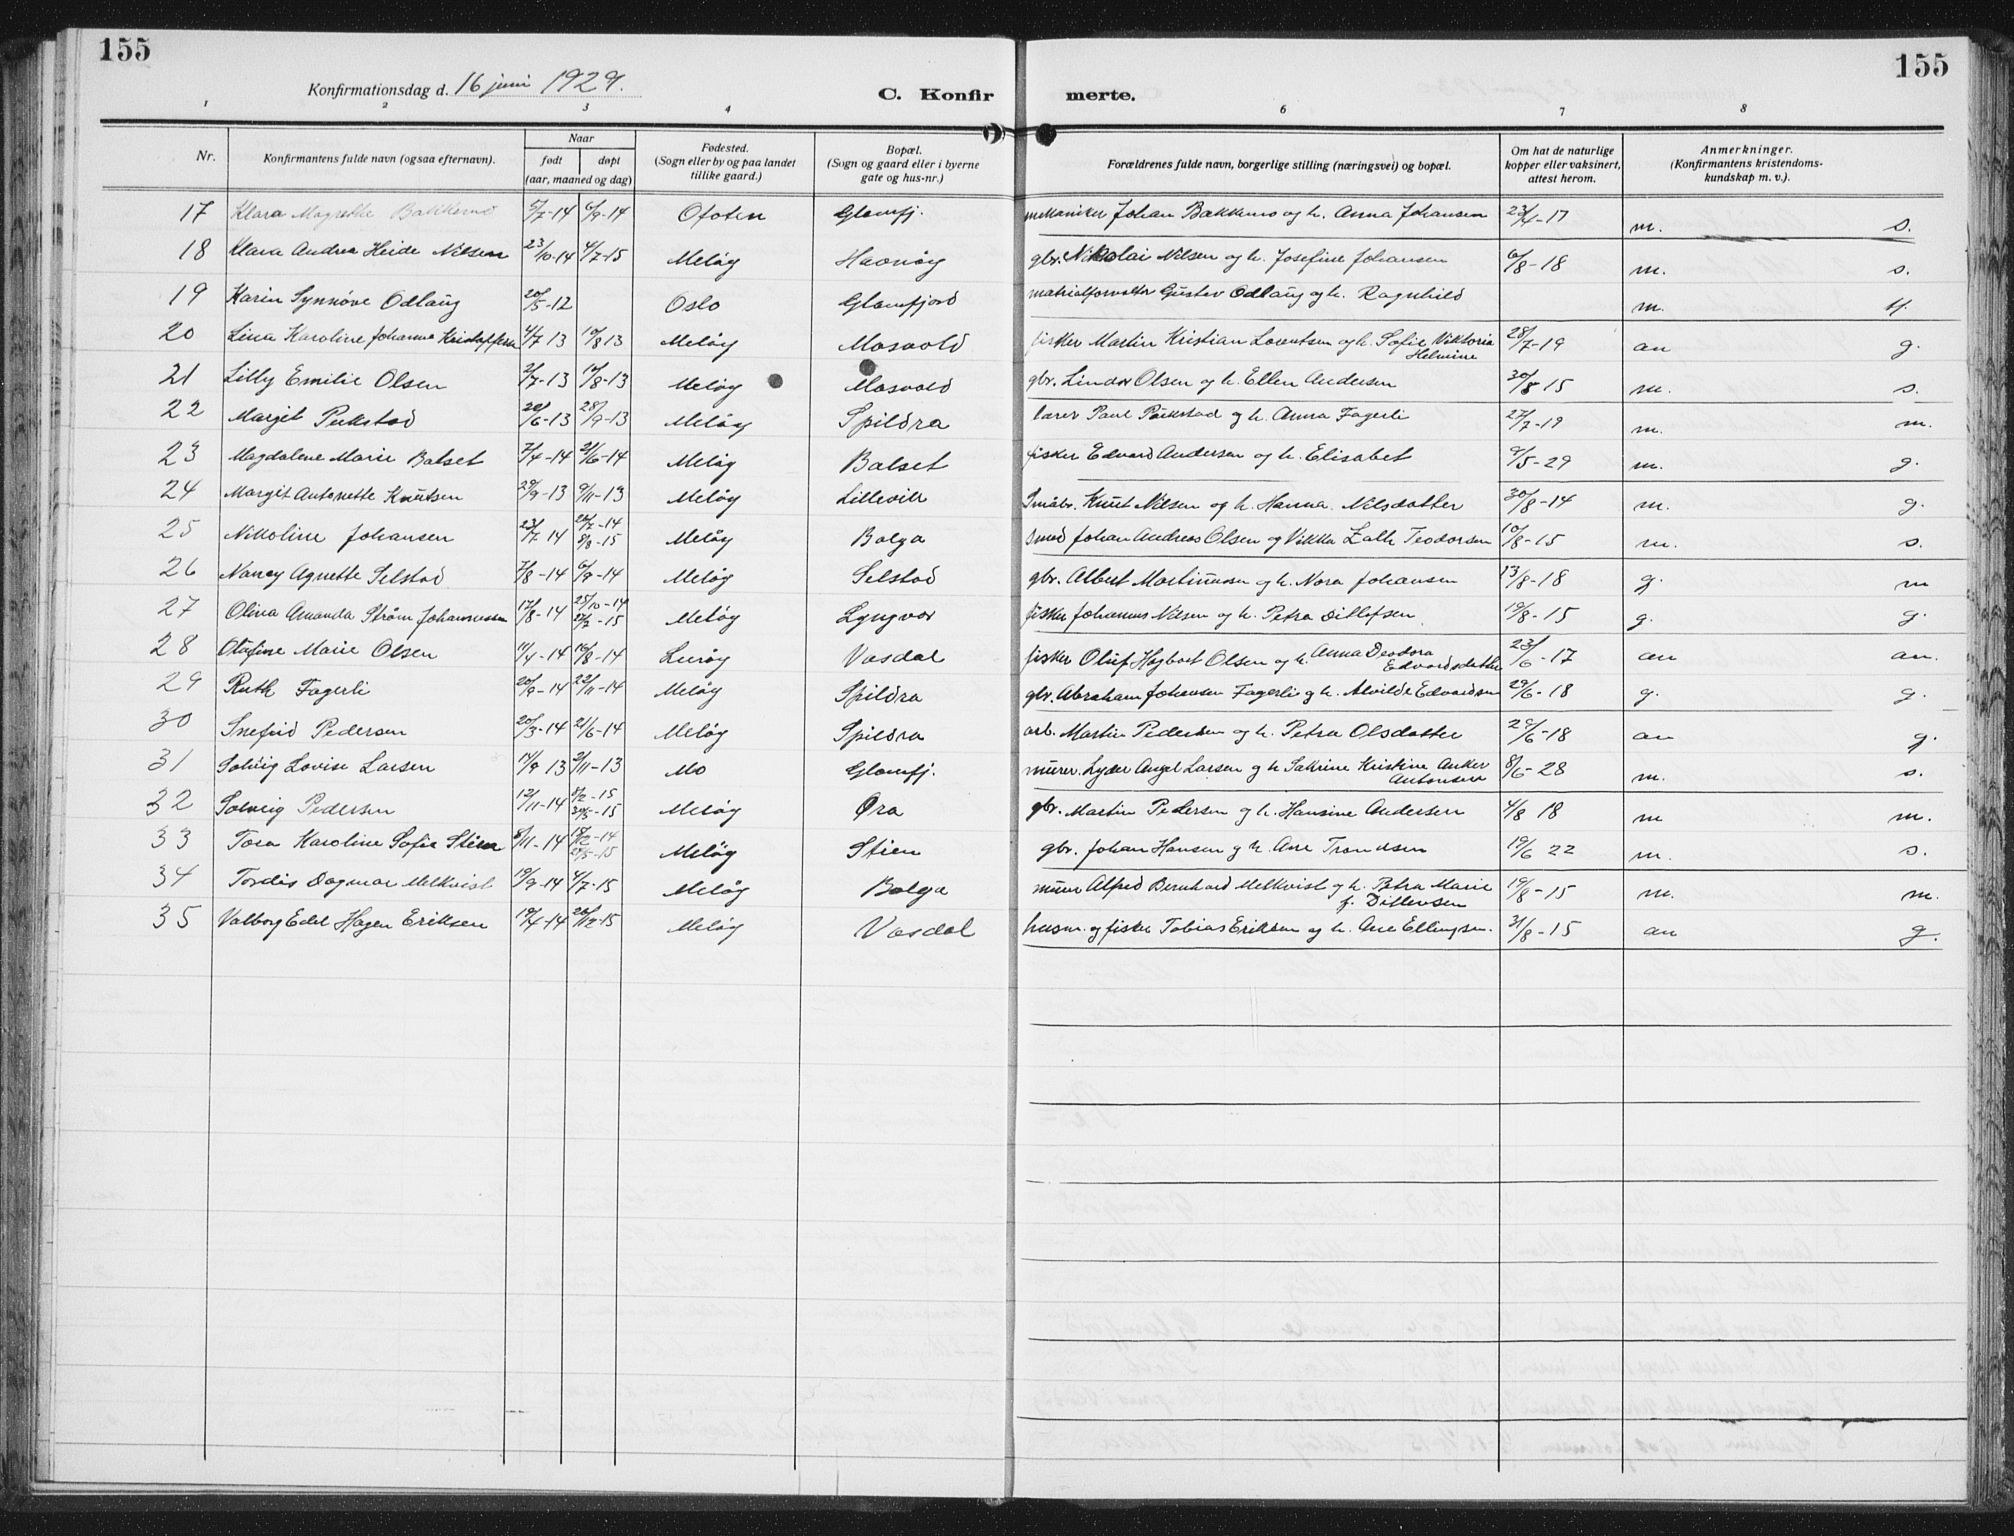 155
155
Konfirmationsdag d. 16 juni 1929.
C. Konfirmerte.
1 2 3 4 6 7 8
Nr.
Konfirmantens fulde navn (ogsaa efternavn).
Naar
født
døpt
(aar, maaned og dag)
Fødested.
(Sogn eller by og paa landet
tillike gaard.)
Bopæl.
(Sogn og gaard eller i byerne
gate og hus-nr.)
Forældrenes fulde navn, borgerlige stilling (næringsvei) og bopæl.
Om hat de naturlige
kopper eller vaksinert,
attest herom.
Anmerkninger.
(Konfirmantens kristendoms-
kundskap m. v.).
17 Klara Magrethe Bakkemo 5/7-14 6/9-14 Ofoten Glomfj. mekaniker Johan Bakkemo og h. Anna Johansen 23/4-17 m. s.
18 Klara Andrea Heide Nilsen 23/10-14 4/7-15 Meløy Havnøy gbr. Nikolai Nilsen og h. Josefine Johansen 6/8-18 m. s.
19 Karin Synnøve Odlaug 20/5-12 Oslo Glomfjord matrialforvalter Gustav Odlaug og h. Ragnhild m.
20 Lina Karoline Johanna Kristoffersen 4/7 13 10/8 13 Meløy Mosvold fisker Martin Kristian Lorentsen og h. Sofie Viktoria Helmine 28/7-19 an g.
21 Lilly Emilie Olsen 2/7-13 10/8-13 Meløy Mosvold gbr. Lindor Olsen og h. Ellen Andersen 30/8 15 m. s.
22 Margit Pukstad 20/6-13 28/9-13 Meløy Spildra lærer Paul Pukstad og h. Anna Fagerli 27/7-19 m. m.
23 Magdalene Marie Balset 7/4-14 21/6-14 Meløy Balset fisker Edvard Andersen og h. Elisabet 9/5-29 m. g.
24 Margit Antonette Knutsen 29/9-13 9/11-13 Meløy Lillevik Småbr. Knut Nilsen og h. Hanna Nilsdatter 30/8-14 m. g.
25 Nikoline Johansen 23/7 14 26/7-14 8/8-15 Meløy Bolga smed Johan Andreas Olsen og Vikka Zalk Teodorsen 10/8-15 m. s.
26 Nancy Agnette Selstad 7/8-14 6/9-14 Meløy Selstad gbr. Albert Martinussen og h. Nora Johansen 13/8-18 g. m
27 Olina Amanda Strøm Johannessen 17/8-14 25/10-14 27/2-15 Meløy Lyngvær fisker Johannes Nilsen og h. Petra Ditlefsen 19/8-15 g. g.
28 Olufine Marie Olsen 11/4-14 16/8-14 Lurøy Vasdal fisker Oluf Hagbart Olsen og h. Anna Deodora Edvardsdatter 23/6-17 an an.
29 Ruth Fagerli 20/9-14 22/11-14 Meløy Spildra gbr. Abraham Johansen Fagerli og h. Alvilde Edvardsen 29/6-18 g. g.
30 Snefrid Pedersen 20/3-14 21/6-14 Meløy Spildra arb. Martin Pedersen og h. Petra Olsdatter 29/6-18 an g.
31 Solvig Lovise Larsen 14/9 13 2/11-13 Mo Glomfj. murer. Lyder Angel Larsen og h Sakrine Kristine Anker Antonsen 8/6-28 m. s.
32 Solveig Pedersen 12/11-14 8/2-15 30/5-15 Meløy Øra gbr. Martin Pedersen og h. Hansine Andersen 4/8 18 m m.
33 Tora Karoline Sofie Stien 8/11-14 18/12-14 25/5-15 Meløy Stien gbr. Johan Hansen g h. Ane Trondsen 19/6 22 m. s.
34 Tordis Dagmar Melkvist 19/9-14 4/7-15 Meløy Bolga murer Alfred Bernhard Melkvist og h. Petra Marie f. Ditlevsen 19/8-15 m. m.
35 Valborg Edel Hagen Eriksen 19/4-14 26/12-15 Meløy Vasdal husm. og fisker Tobias Eriksen og h. Ane Ellingsen. 31/8-15 an g.